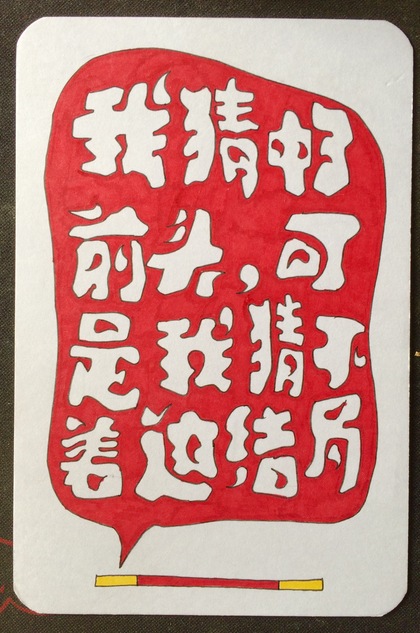 我猜中了
前头，可
是我猜不
着这结局